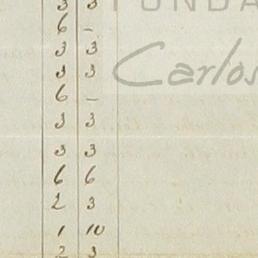 3 3
6 -
3 3
3 3
6 -
3 3
3 3
6 6
2 3
1 10
2 3
FUNDA
Carlos